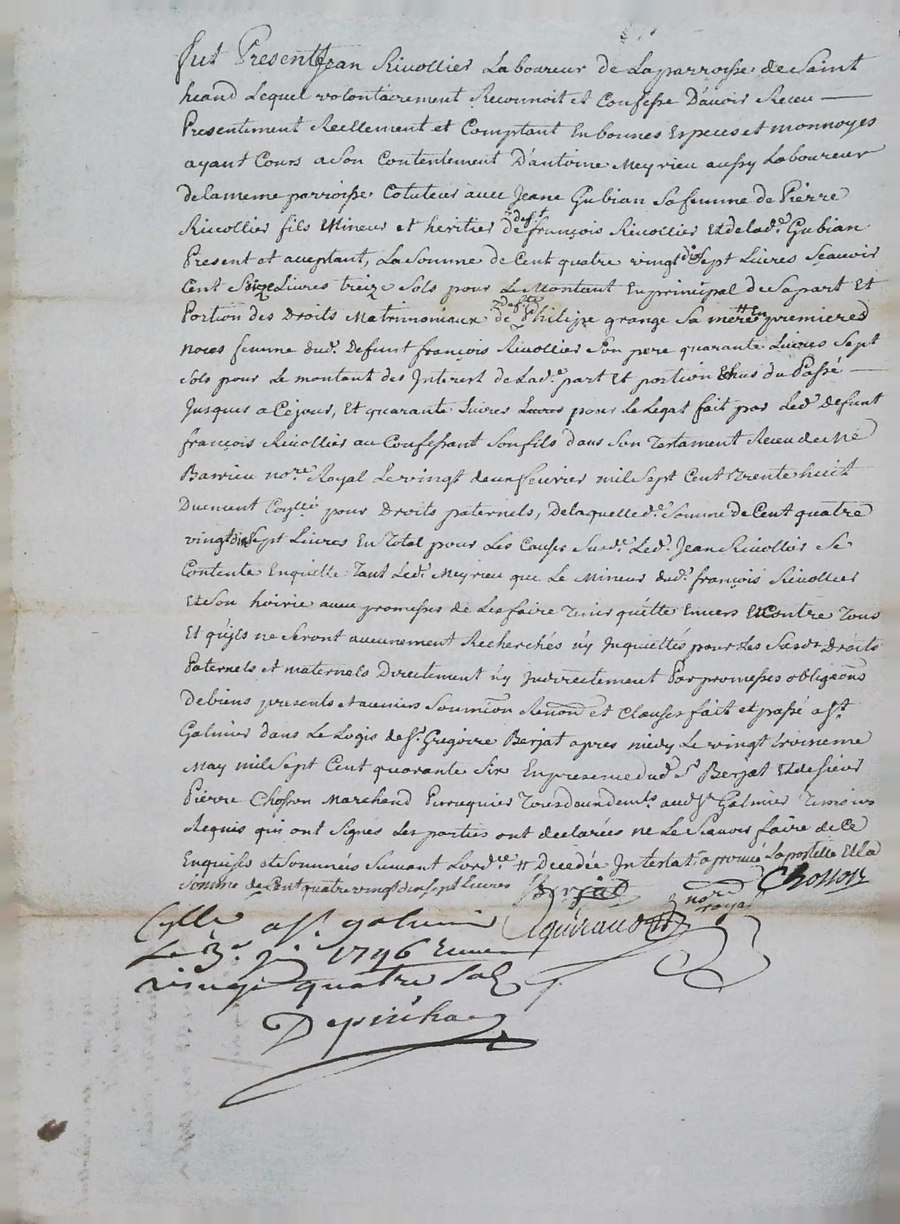 fut Present Jean Rivollier Laboureur de Laparroisse de Saint
heand Lequel volontairement Reconnoit et Confesse D'avoir Receu
Presentement Reellement et Comptant En bonnes Especes et monnoyes
ayant Cours a Son Contentement D'antoine Meyrieu aussy Laboureur
delameme parroisse Cotuteur avec Jeane Gubian Safemme de Pierre
Rivollier fils Mineur et heritier de deft françois Rivollier Et delade Gubian
Present et aceptant, La Somme de Cent quatre vingt dix Sept Livres Sçavoir
Cent Seize Livres treize Sols pour Le Montant En principal de Sapart Et
Portion des Droits Matrimoniaux de defte Philipe grange Sa mere # En premieres
noces femme dud. Deffunt françois Rivollier Son pere quarante Livres Sept
Sols pour Le montant des Interest de Lade part Et portion Echus du Passé
Jusques a Cejour, Et quarante Livres pour Le Legat fait par Led. Defunt
françois Rivollier au Confessant Sonfils dans Son Testament Receu de Me
Barrieu nore Royal Le vingt deux fevrier mil Sept Cent trente huit
Duement Coyllé pour Droits paternels, Delaquelle de Somme de Cent quatre
vingt dix Sept Livres En Total pour Les Causes Susd. Led. Jean Rivollier Se
Contente Enquitte Tant Led. Meyrieu que Le Mineur dud. françois Rivollier
Et Son hoirie avec promesses de Les faire Tenir quitte Envers Et Contre Tous
Et qu'ils ne Seront aucunement Recherchés n'y Inquiettés pour Les Susds Droits
Paternels et maternels Directement n'y Indirectement Par promesses obligaons
De biens presents et avenirs Soumíon Renonon et Clauses fait et passé a St
Galmier dans Le Logis de Sr Gregoire Berjat apres midy Le vingt troisieme
May mil Sept Cent quarante Six En presence dud. Sr Berjat Et de Sieur
Pierre Chosson Marchand Perruquier aud. St Galmier Temoins
Requis qui ont Signés Les parties ont declarées ne Le Sçavoir faire de Ce
Enquises et Sommées Suivant Lordce # Decedée Intestat aprouvé Et La
Somme de Cent quatre vingt dix Sept Livres Berjat Chosson
nore royal
Cyllé a St galmier
Le 3e Jn 1746
vingt quatre Sols